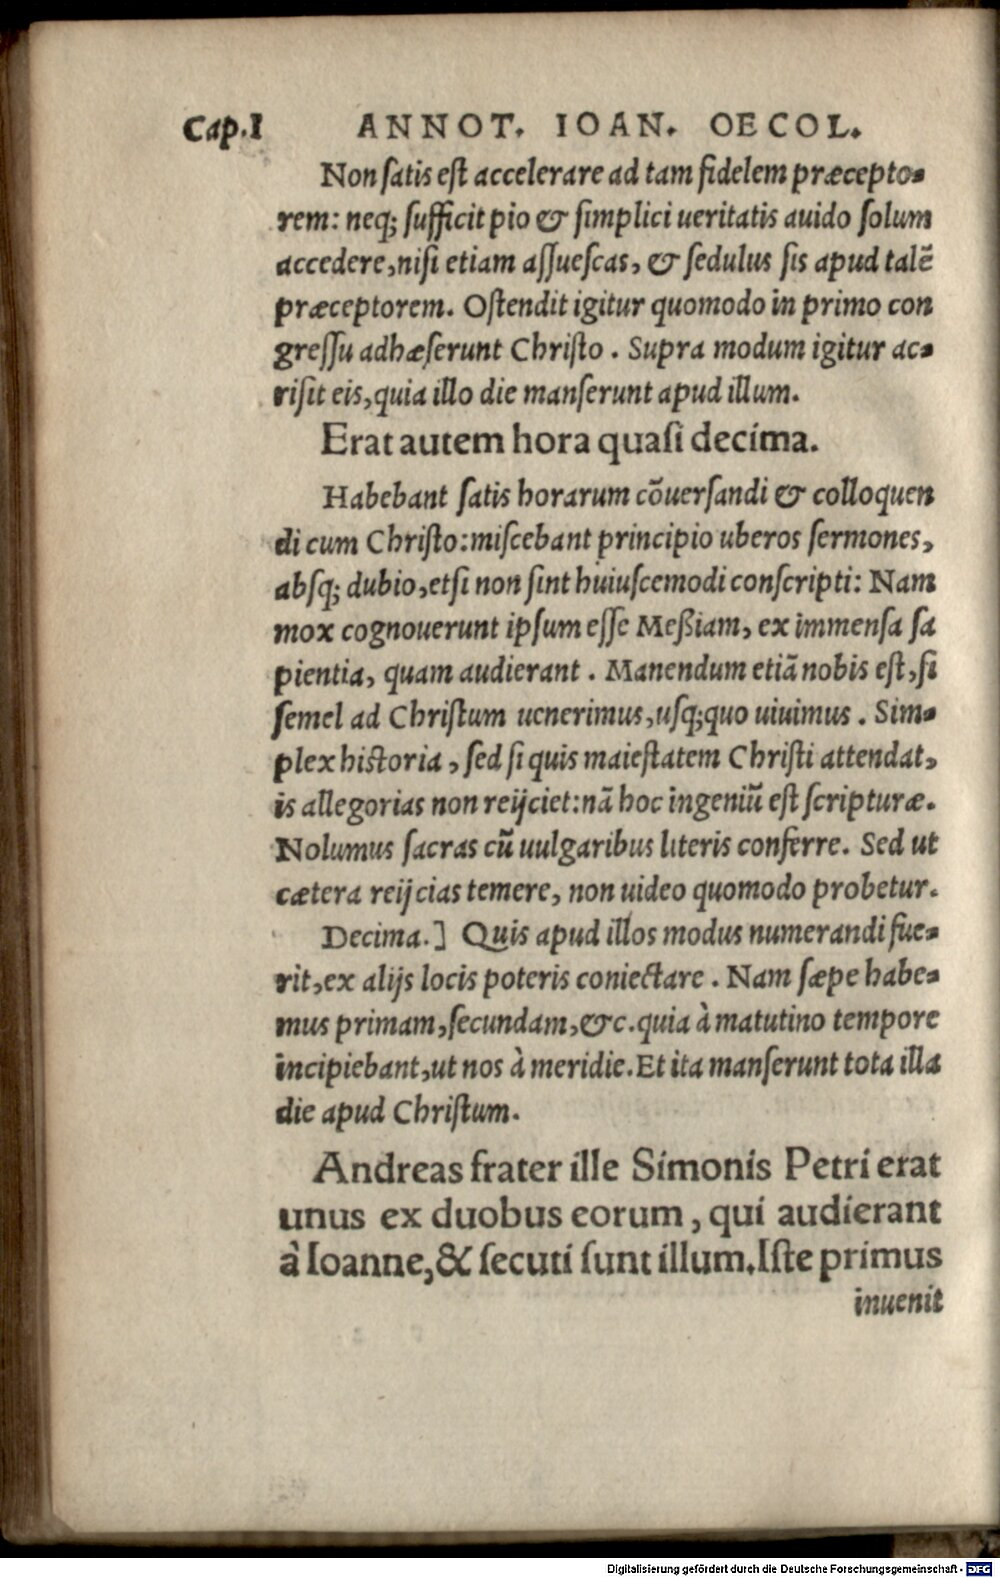 Cap.I ANNOT. IOAN. OECOL.
Non satis est accelerare ad tam fidelem præcepto-
rem: neq; sufficit pio & simplici ueritatis auido solum
accedere, nisi etiam assuescas, & sedulus sis apud talẽ
præceptorem. Ostendit igitur quomodo in primo con
gressu adhæserunt Christo. Supra modum igitur ac-
risit eis, quia illo die manserunt apud illum.
Erat autem hora quasi decima.
Habebant satis horarum cõuersandi & colloquen
di cum Christo: miscebant principio uberos sermones,
absq; dubio, etsi non sint huiuscemodi conscripti: Nam
mox cognouerunt ipsum esse Meßiam, ex immensa sa
pientia, quam audierant. Manendum etiã nobis est, si
semel ad Christum uenerimus, usq;quo uiuimus. Sim-
plex historia, sed si quis maiestatem Christi attendat,
is allegorias non reijciet: nã hoc ingeniũ est scripturæ.
Nolumus sacras cũ uulgaribus literis conferre. Sed ut
cætera reijcias temere, non uideo quomodo probetur.
Decima.] Quis apud illos modus numerandi fue-
rit, ex alijs locis poteris coniectare. Nam sæpe habe-
mus primam, secundam, &c. quia à matutino tempore
incipiebant, ut nos à meridie. Et ita manserunt tota illa
die apud Christum.
Andreas frater ille Simonis Petri erat
unus ex duobus eorum, qui audierant
à Ioanne, & secuti sunt illum. Iste primus
inuenit
Digitalisierung gefördert durch die Deutsche Forschungsgemeinschaft - DFG